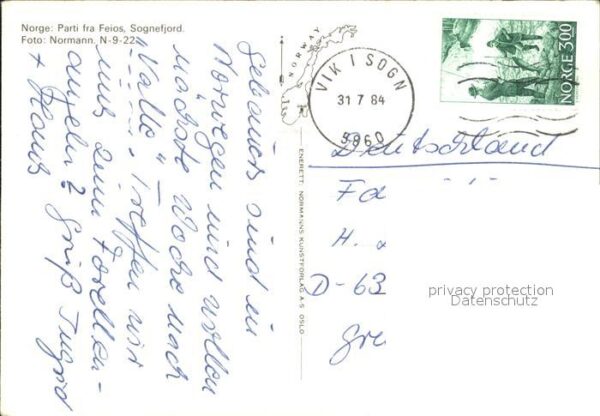 Norge: Parti fra Feios, Sognefjord.
Foto: Normann. N-9-22
NORWAY
VIK I SOGN
31 7 84
5860
NORGE 300
ENERETT: NORMANNS KUNSTFORLAG A-S OSLO
Gebauers sind in
Norwegen und wollen
nächste Woche nach
"Valle". Treffen wir
uns zum Forellen-
angeln? Gruß Ingrid
+ Klaus
Deutschland
Fa
H.
D-63
Gre
privacy protection
Datenschutz